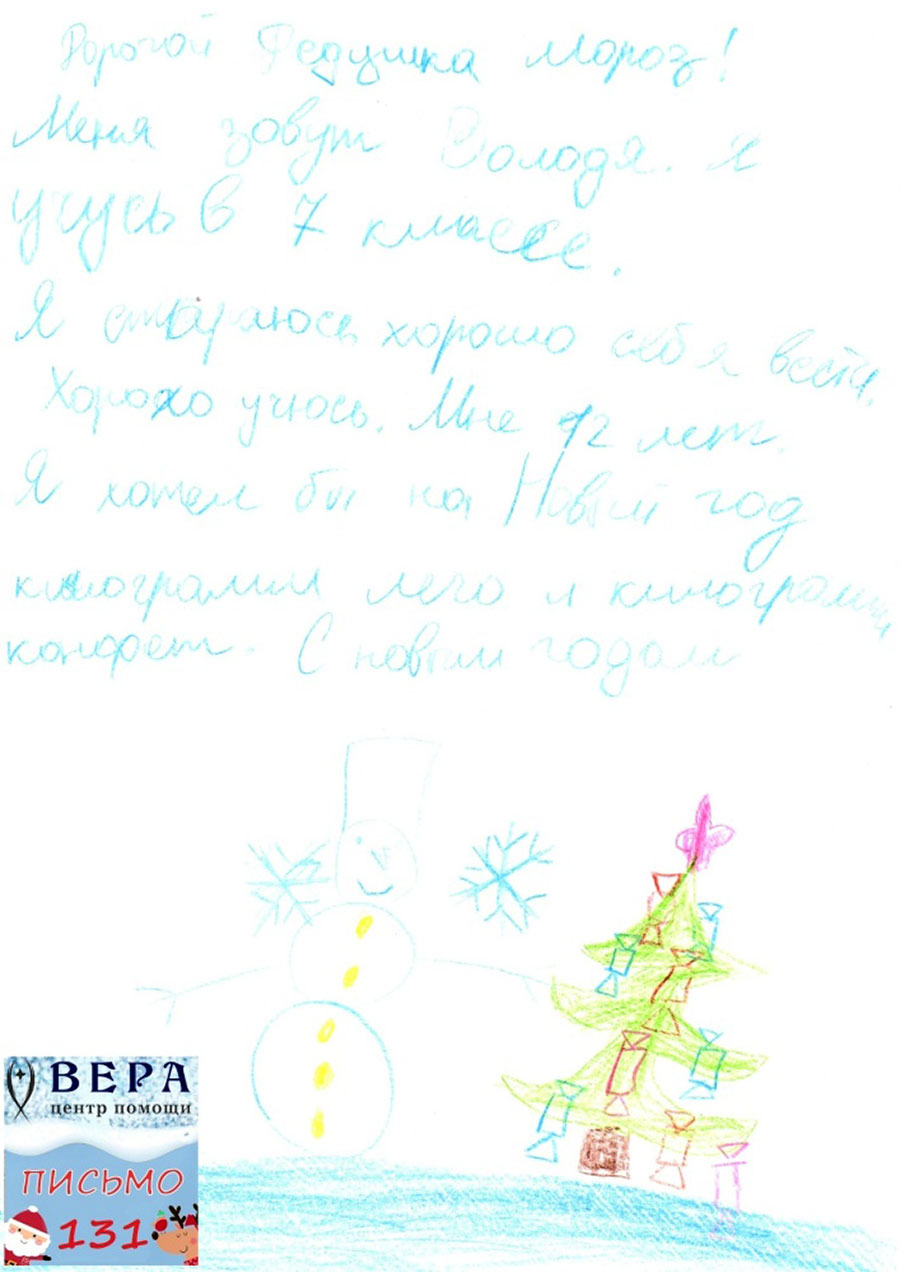 Дорогой Дедушка мороз!
Меня зовут Володя. Я
учусь в 7 классе.
Я стараюсь хорошо себя вести.
Хорохо учюсь. Мне 12 лет.
Я хотел бы на Новый год
килограмм лего и килограмм
конфет. С новым годом
ВЕРА
центр помощи
ПИСЬМО
131